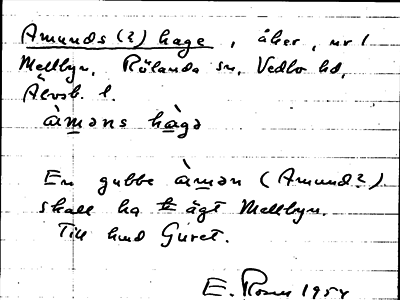 Amunds (?) hage, åker, nr 1
Mellbyn, Rölanda sn, Vedbo hd,
Älvsb. l.
àməns hàgə
En gubbe àmən (Amund?)
skall ha ägt Mellbyn.
Till hmd Guret.
E. Rosén 195